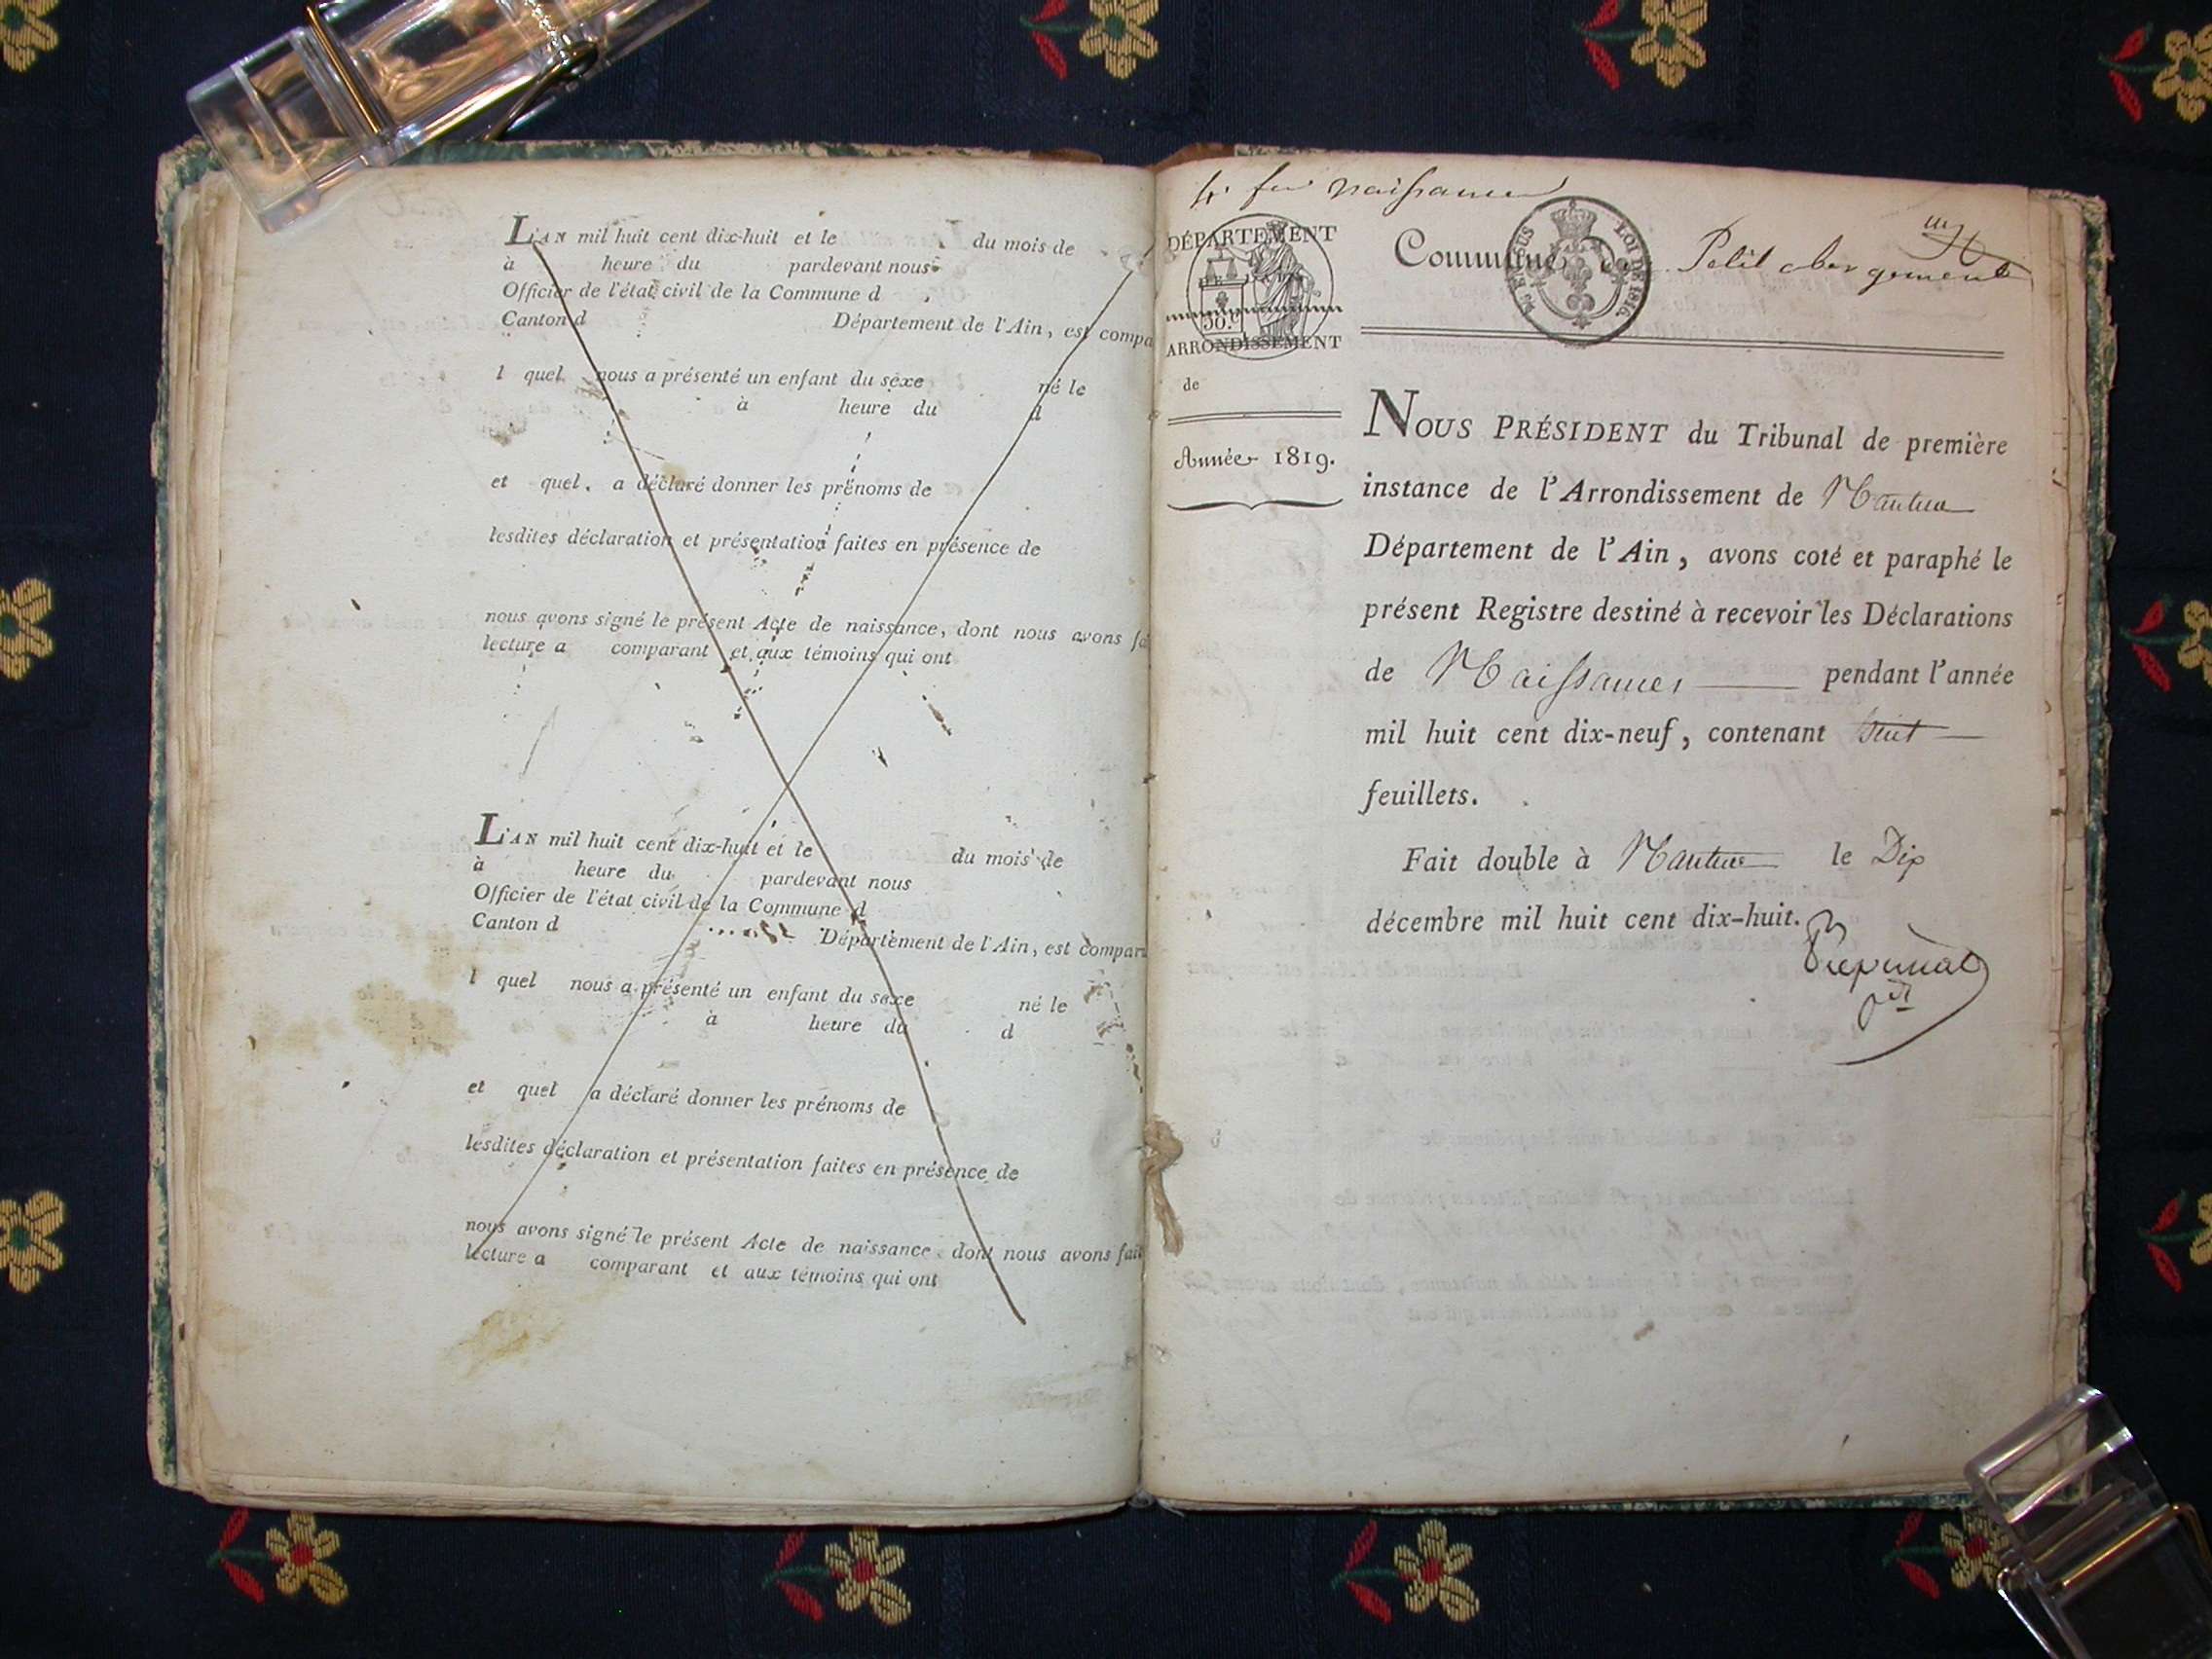 L'AN mil huit cent dix-huit et le du mois de
à heure du pardevant nous
Officier de l'état civil de la Commune d
Canton d Département de l'Ain, est compa
l quel nous a présenté un enfant du sexe né le
à heure du d
et quel a déclaré donner les prénoms de
lesdites déclaration et présentation faites en présence de
nous avons signé le présent Acte de naissance, dont nous avons fa
lecture a comparant et aux témoins qui ont
L'AN mil huit cent dix-huit et le du mois de
à heure du pardevant nous
Officier de l'état civil de la Commune d
Canton d Département de l'Ain, est compar
l quel nous a présenté un enfant du sexe né le
à heure du d
et quel a déclaré donner les prénoms de
lesdites déclaration et présentation faites en présence de
nous avons signé le présent Acte de naissance dont nous avons fait
lecture a comparant et aux témoins qui ont
naissances
DÉPARTEMENT
50.c
ARRONDISSEMENT
de
Année 1819.
Commune de Petit abergement
LOI DE 1816.
NOUS PRÉSIDENT du Tribunal de première
instance de l'Arrondissement de Nantua
Département de l'Ain, avons coté et paraphé le
présent Registre destiné à recevoir les Déclarations
de Naissances pendant l'année
mil huit cent dix-neuf, contenant huit
feuillets.
Fait double à Nantua le Dix
décembre mil huit cent dix-huit.